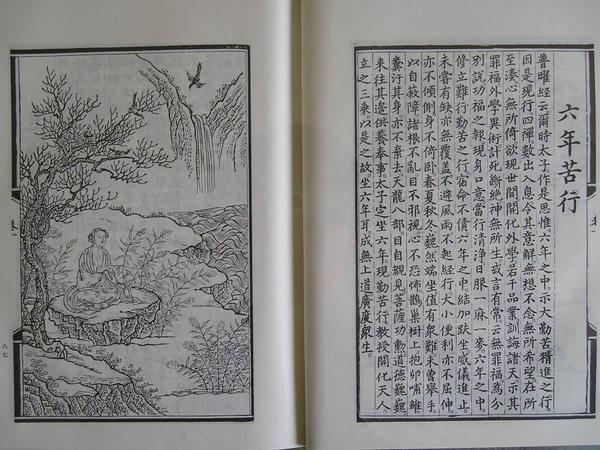 六年苦行
普曜經云爾時太子作是思惟六年之中。示大勤苦精進之行。
因是現行四禪數出入息令其意解無想不念無所希望在所
至湊心無所倚欲現世間開化外學若干品業訓誨諸天示其
罪福外學異術計死斷絕神無所生或言有常云無罪福為分
別說功福之報現身口意當行清淨日服一麻一麥六年之中。
修立難行勤苦之行宿命不債六年之中。結加趺坐威儀進止。
未嘗有缺亦無覆蓋不避風雨不起經行大小便利亦不屈伸。
亦不傾側身不倚臥春夏秋冬巍然端坐值有眾難未曾舉手。
以自蔽障諸根不亂目不邪視心不恐怖鵲巢樹上抱卵哺雛
糞汙其身亦不棄去天龍八部目自覩見菩薩功勳道德巍巍
來往其邊供養奉事太子定坐六年。現勤苦行教授開化天人
立之三乘以是之故坐六年耳成無上道廣度眾生。
八七